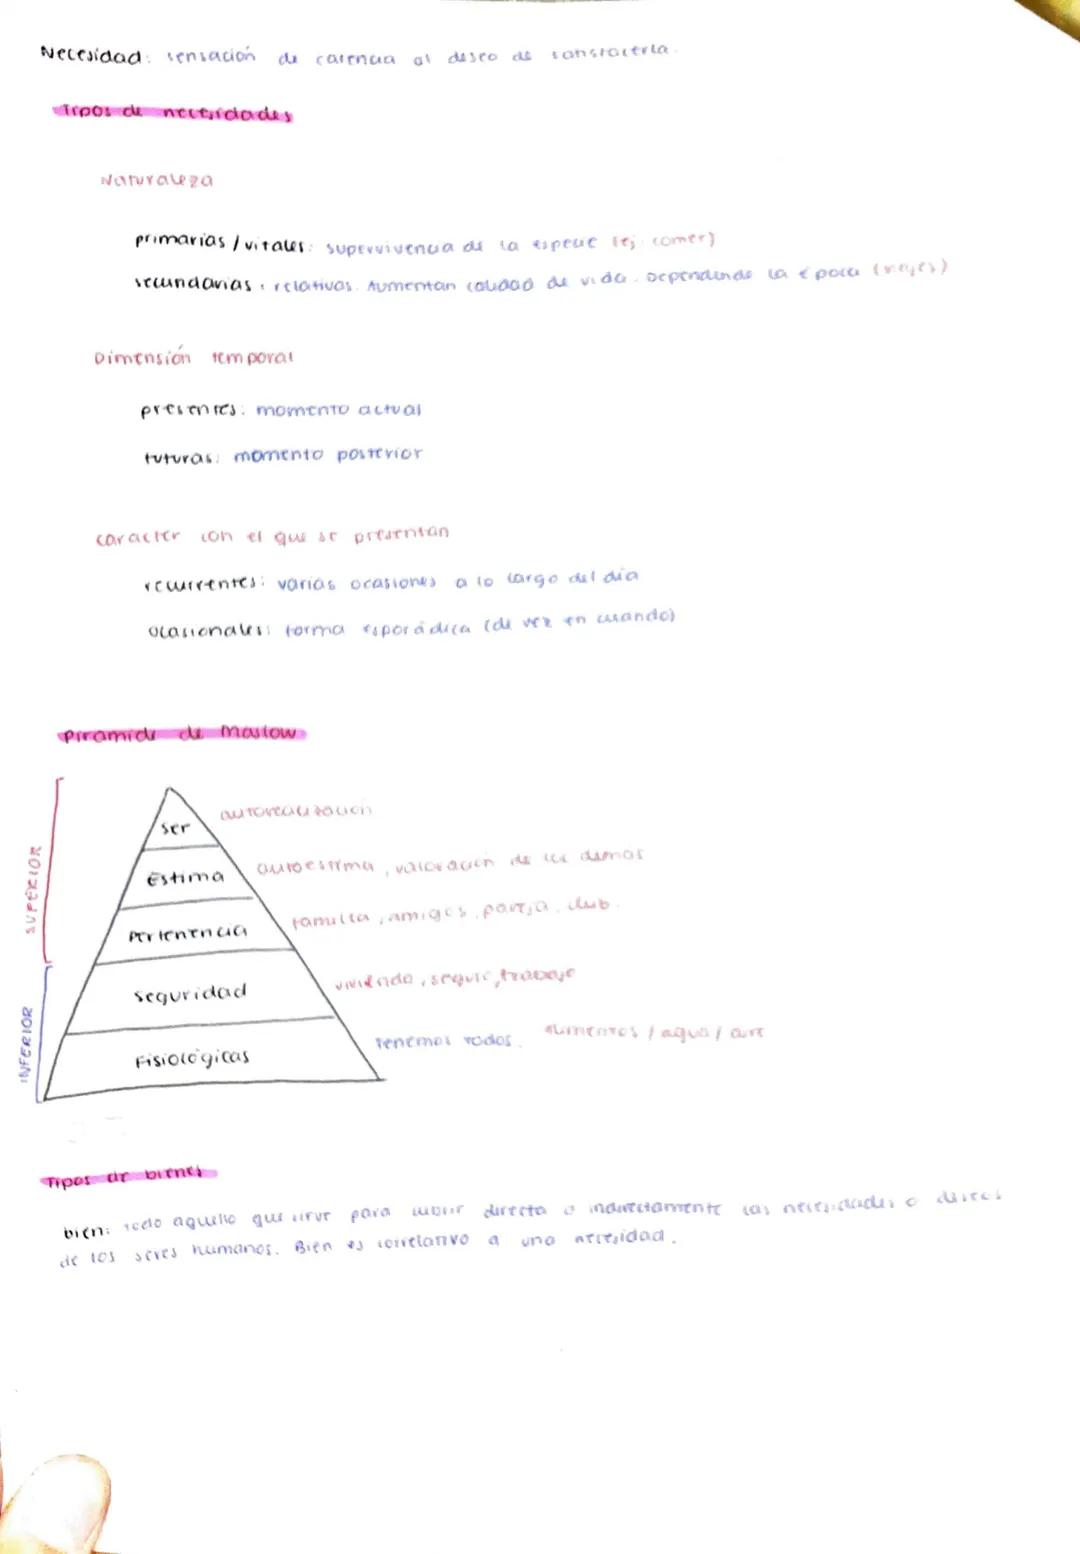 Necesidad: sensación de carencia al deseo de satisfacerla.
Tipos de necesidades
Naturaleza
primarias / vitales: supervivencia de la especie (ej: comer)
secundarias: relativas. Aumentan calidad de vida. Dependiendo la época (viajes)
Dimensión temporal
presentes: momento actual
futuras: momento posterior
caracter con el que se presentan
recurrentes: varias ocasiones a lo largo del día
ocasionales: forma esporádica (de vez en cuando)
Piramide de Maslow
SUPERIOR
ser autorealización
Estima autoestima, valoración de los demas
Pertenencia familia, amigos, pareja, club.
INFERIOR
seguridad vivienda, seguro, trabajo
Fisiológicas Tenemos todos. alimentos / agua / aire
Tipos de bienes
bien: todo aquello que sirve para cubrir directa o indirectamente las necesidades o deseos
de los seres humanos. Bien es correlativo a una necesidad.